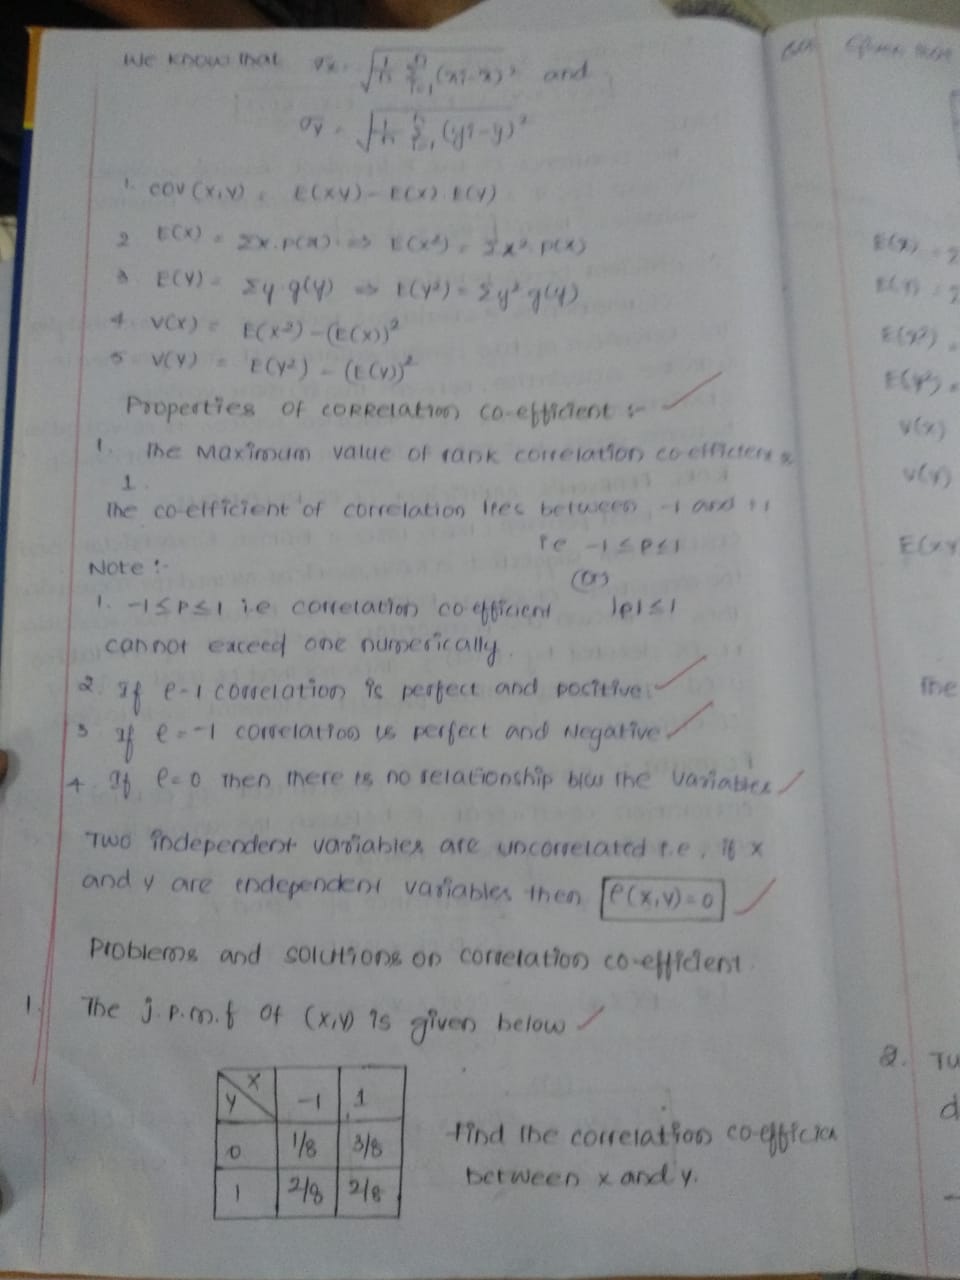 We know that σx = √1/n Σ i=1 n (xi-x̄)² and
σy = √1/n Σ i=1 n (yi-ȳ)²
1. COV (X,Y) = E(XY) - E(X).E(Y)
2 E(X) = Σx.p(x) => E(x²) = Σx².p(x)
3. E(Y) = Σy.g(y) => E(y²) = Σy² g(y)
4. V(X) = E(X²) - (E(X))²
5 V(Y) = E(Y²) - (E(Y))²
Properties of correlation co-efficient :-
1. The Maximum value of rank correlation co-efficient is
1.
The co-efficient of correlation lies between -1 and +1
ie -1≤ρ≤1
Note :-
(or)
1. -1≤ρ≤1 i.e correlation co efficient |ρ|≤1
cannot exceed one numerically.
2. If ρ-1 correlation is perfect and positive.
3 If ρ=-1 correlation is perfect and Negative
4. If ρ=0 then there is no relationship b/w the variables
Two independent variables are uncorrelated i.e, if x
and y are independent variables then ρ(X,Y)=0
Problems and solutions on correlation co-efficient.
1. The j.p.m.f of (X,Y) is given below
X
Y -1 1
0 1/8 3/8
1 2/8 2/8
find the correlation co-efficien
between x and y.
Given
E(x) =
E(Y) =
E(x²) =
E(y²) =
V(x)
V(Y)
E(xY
The
2. Tw
d